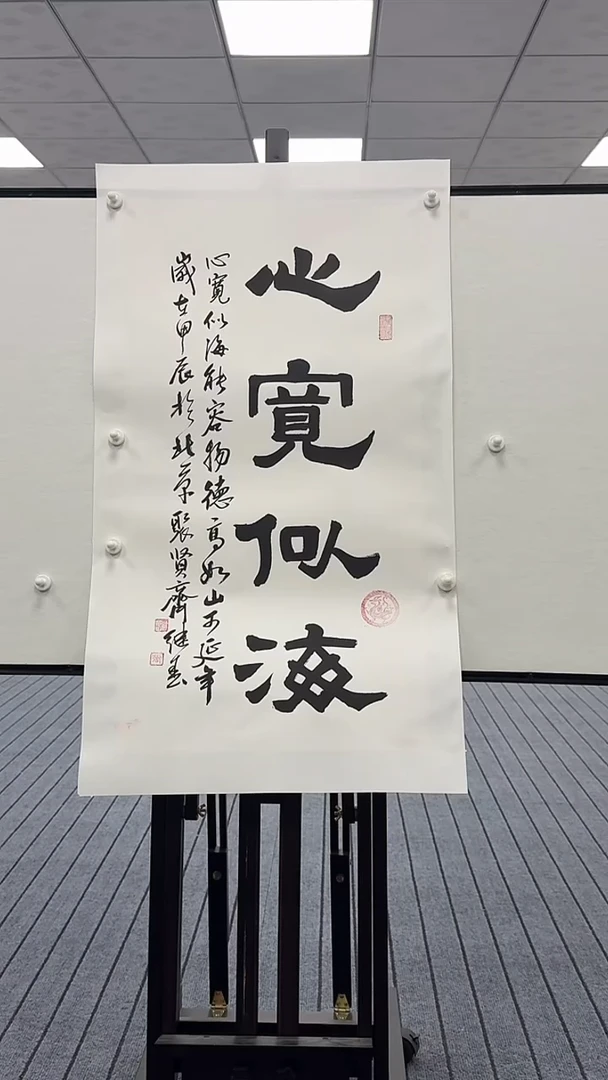 心寬似海
心寬似海能容物德高如山可延年
歲在甲辰於北京聚贤齋继善